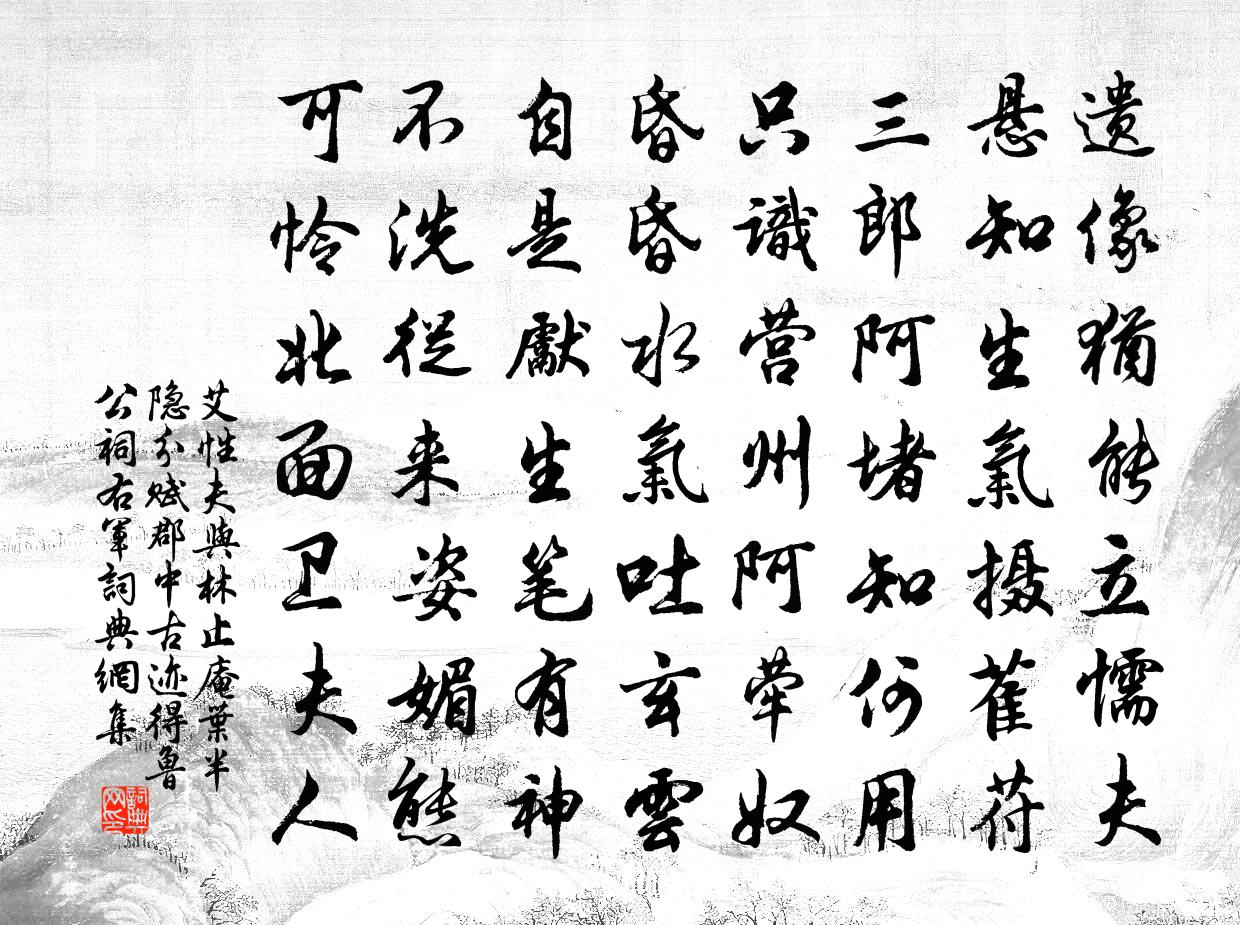 遗像犹能立懦夫
悬知生氣摄萑苻
三郎阿堵知何用
只識营州阿荦奴
昏昏水氣吐玄雲
自是獻生笔有神
不洗從来姿媚態
可怜北面卫夫人
艾性夫與林止庵葉半
隐分赋郡中古迹得魯
公祠右軍詞典網集